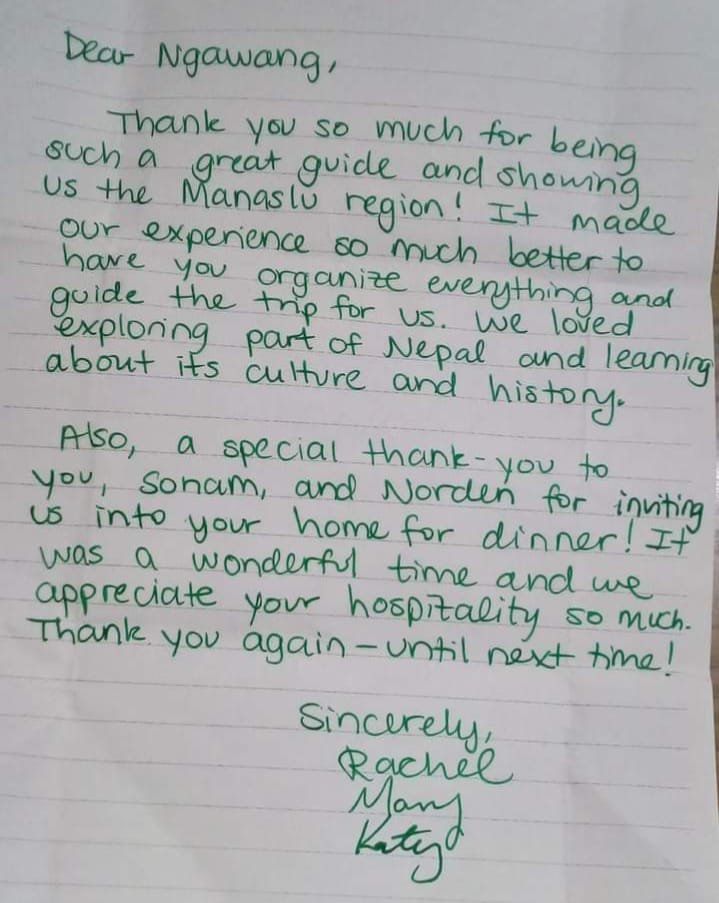 Dear Ngawang,
Thank you so much for being
such a great guide and showing
us the Manaslu region! It made
our experience so much better to
have you organize everything and
guide the trip for us. We loved
exploring part of Nepal and learning
about its culture and history.
Also, a special thank-you to
you, Sonam, and Norden for inviting
us into your home for dinner! It
was a wonderful time and we
appreciate your hospitality so much.
Thank you again - until next time!
Sincerely,
Rachel
Mary
Katy